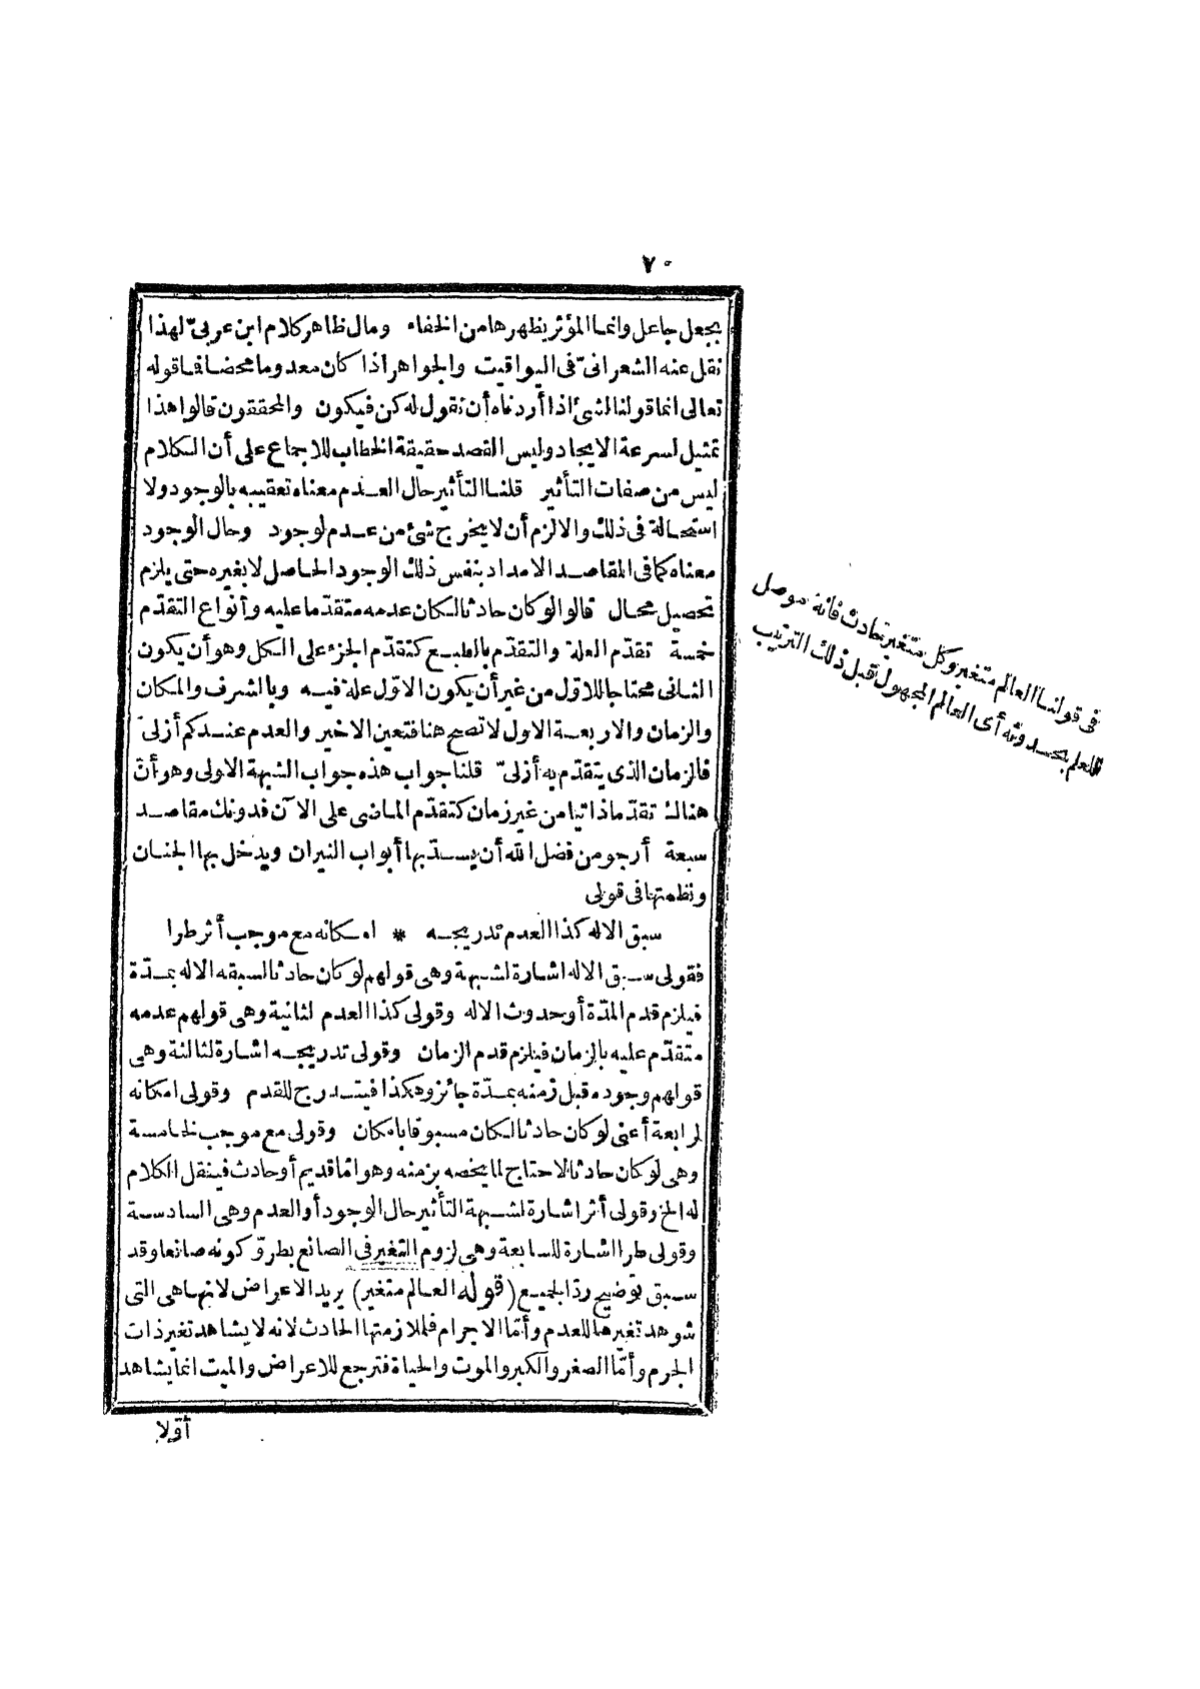 ٧٠
بجعل جاعل وانما المؤثر يظهرها من الخفاء ومال ظاهر كلام ابن عربىّ لهذا
نقل عنه الشعرانىّ فى اليواقيت والجواهر اذا كان معدوما محضا فما قوله
تعالى انما قولنا لشئ اذا أردناه أن نقول له كن فيكون والمحققون قالوا هذا
تمثيل لسرعة الايجاد وليس القصد حقيقة الخطاب للاجماع على أن الكلام
ليس من صفات التأثير قلنا التأثير حال العدم معناه تعقيبه بالوجود ولا
استحالة فى ذلك والا لزم أن لا يخرج شئ من عدم لوجود وحال الوجود
معناه كما فى المقاصد الامداد بنفس ذلك الوجود الحاصل لا بغيره حتى يلزم
تحصيل محال قالوا لو كان حادثا لكان عدمه متقدّما عليه وأنواع التقدّم
خمسة تقدّم العلة والتقدّم بالطبع كتقدّم الجزء على الكل وهو أن يكون
الثانى محتاجا للاوّل من غير أن يكون الاوّل علة فيه وبالشرف والمكان
والزمان والاربعة الاول لا تصح هنا فتعين الاخير والعدم عندكم أزلىّ
فالزمان الذى يتقدّم به أزلىّ قلنا جواب هذه جواب الشبهة الاولى وهو أنّ
هناك تقدّما ذاتيا من غير زمان كتقدّم الماضى على الآن فدونك مقاصد
سبعة أرجو من فضل الله أن يسدّ بها أبواب النيران ويدخل بها الجنان
ونظمتها فى قولى
سبق الاله كذا العدم تدريجه * امكانه مع موجب أثر طرا
فقولى سبق الاله اشارة لشبهة وهى قولهم لو كان حادثا لسبقه الاله بمدّة
فيلزم قدم المدّة أو حدوث الاله وقولى كذا العدم لثانية وهى قولهم عدمه
متقدّم عليه بالزمان فيلزم قدم الزمان وقولى تدريجه اشارة لثالثة وهى
قولهم وجوده قبل زمنه بمدّة جائز وهكذا فيتدرج للقدم وقولى امكانه
لرابعة أعنى لو كان حادثا لكان مسبوقا بامكان وقولى مع موجب لخامسة
وهى لو كان حادثا لاحتاج لما يخصه بزمنه وهو امّا قديم أو حادث فينقل الكلام
له الخ وقولى أثر اشارة لشبهة التأثير حال الوجود أو العدم وهى السادسة
وقولى طرا اشارة للسابعة وهى لزوم التغير فى الصانع بطروّ كونه صانعا وقد
سبق توضيح ردّ الجميع (قوله العالم متغير) يريد الاعراض لانها هى التى
شوهد تغيرها للعدم وأمّا الاجرام فملازمتها الحادث لانه لا يشاهد تغير ذات
الجرم وأمّا الصغر والكبر والموت والحياة فترجع للاعراض والميت انما يشاهد
أوّلا
فى قولنا العالم متغير وكل متغير حادث فانه موصل
للعلم بحدوثه أى العالم المجهول قبل ذلك الترتيب